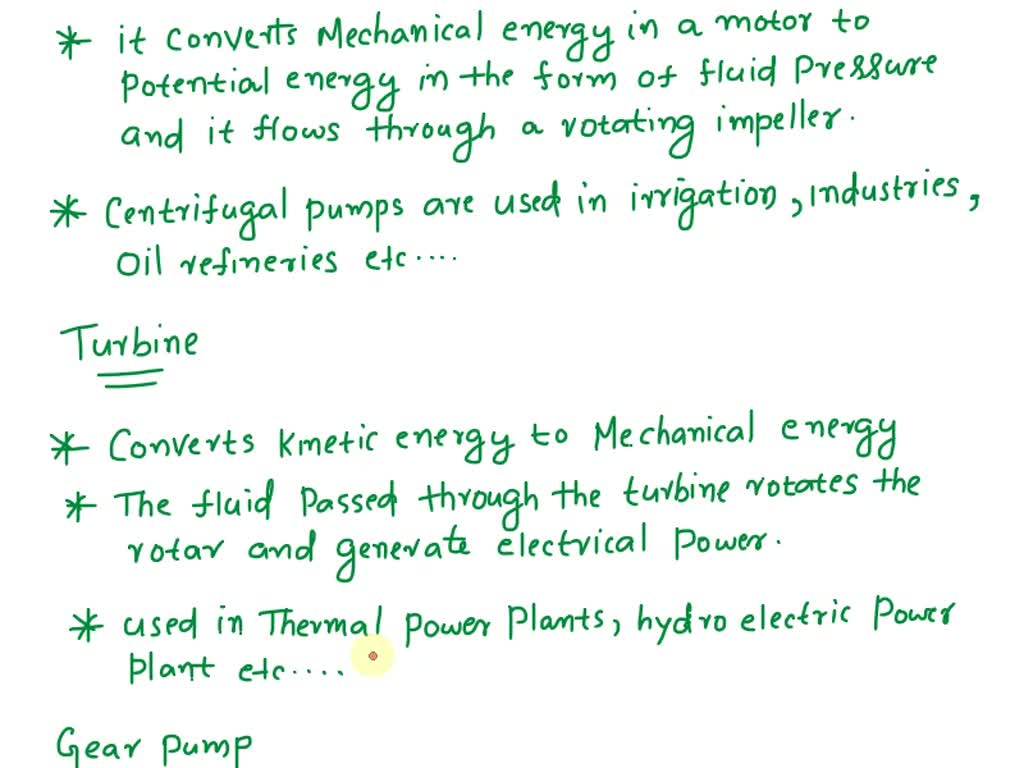 * it converts Mechanical energy in a motor to
potential energy in the form of fluid Pressure
and it flows through a rotating impeller.
* Centrifugal pumps are used in irrigation, industries,
Oil refineries etc....
Turbine
* Converts Kinetic energy to Mechanical energy
* The fluid Passed through the turbine rotates the
rotar and generate electrical Power.
* used in Thermal Power Plants, hydro electric Power
Plant etc.....
Gear pump